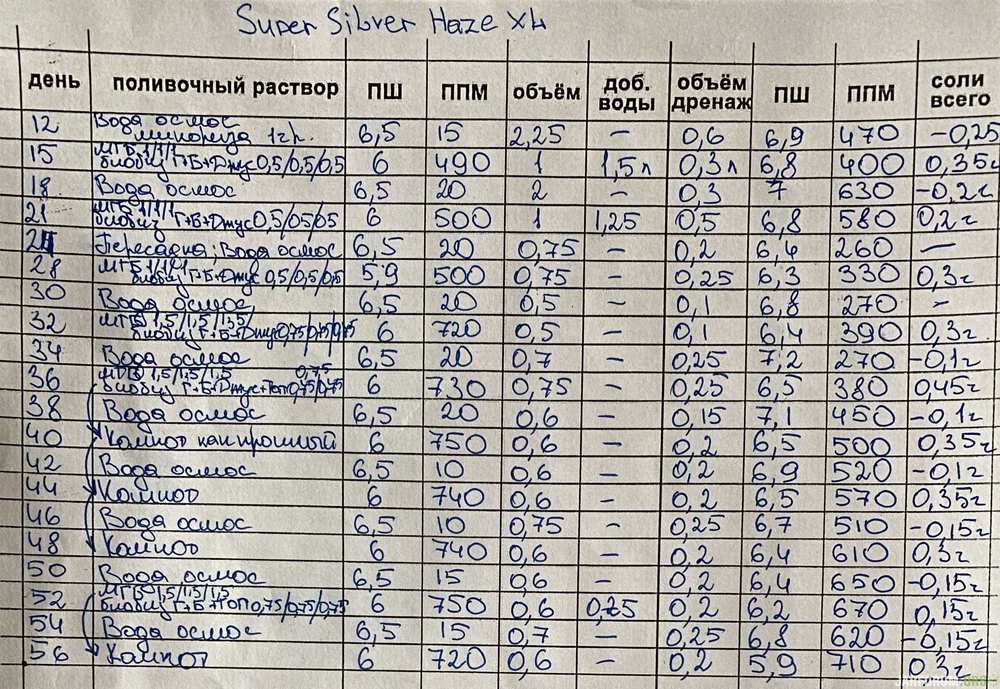 Super Silver Haze XL
день поливочный раствор ПШ ППМ объём доб. воды объём дренаж ПШ ППМ соли всего
12 Вода осмос 6,5 15 2,25 – 0,6 6,9 470 -0,25
микориза 1гр.
15 МГБ 1/1/1 6 490 1 1,5л 0,3л 6,8 400 0,35г
биобиз Г+Б+Джус 0,5/0,5/0,5
18 Вода осмос 6,5 20 2 – 0,3 7 630 -0,2г
21 МГБ 1/1/1 6 500 1 1,25 0,5 6,8 580 0,2г
биобиз Г+Б+Джус 0,5/05/05
Пересадка; Вода осмос 6,5 20 0,75 – 0,2 6,4 260 –
28 МГБ 1/1/1 5,9 500 0,75 – 0,25 6,3 330 0,3г
биобиз Г+Б+Джус 0,5/0,5/0,5
30 Вода осмос 6,5 20 0,5 – 0,1 6,8 270 –
32 МГБ 1,5/1,5/1,5/ 6 720 0,5 – 0,1 6,4 390 0,3г
биобиз Г+Б+Джус
34 Вода осмос 6,5 20 0,7 – 0,25 7,2 270 -0,1г
36 МГБ 1,5/1,5/1,5 0,75 6 730 0,75 – 0,25 6,5 380 0,45г
биобиз Г+Б+Джус+Топ 0,75/0,75
38 Вода осмос 6,5 20 0,6 – 0,15 7,1 450 -0,1г
40 Компот как прошлый 6 750 0,6 – 0,2 6,5 500 0,35г
42 Вода осмос 6,5 10 0,6 – 0,2 6,9 520 -0,1г
44 Компот 6 740 0,6 – 0,2 6,5 570 0,35г
46 Вода осмос 6,5 10 0,75 – 0,25 6,7 510 -0,15г
48 Компот 6 740 0,6 – 0,2 6,4 610 0,3г
50 Вода осмос 6,5 15 0,6 – 0,2 6,4 650 -0,15г
52 МГБ 1,5/1,5/1,5 6 750 0,6 0,25 0,2 6,2 670 0,15г
биобиз Г+Б+ТОП 0,75/0,75/0,75
54 Вода осмос 6,5 15 0,7 – 0,25 6,8 620 -0,15г
56 Компот 6 720 0,6 – 0,2 5,9 710 0,3г